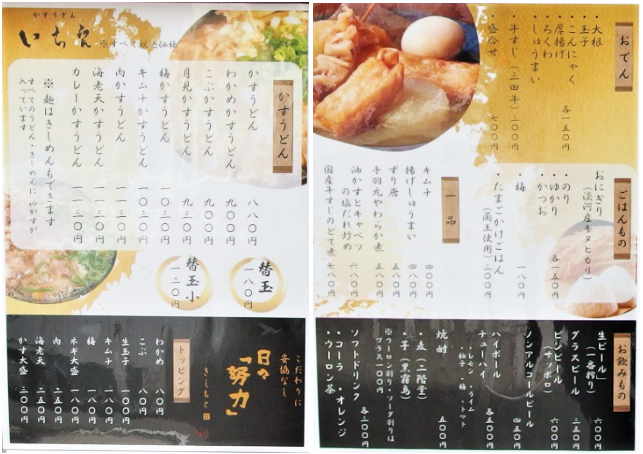 かすうどん
いち
※すべて税込価格
かすうどん
かすうどん 八八〇円
わかめかすうどん 九〇〇円
こぶかすうどん 九〇〇円
月見かすうどん 九三〇円
梅かすうどん 一〇三〇円
キムチかすうどん 一〇三〇円
肉かすうどん 一一三〇円
海老天かすうどん 一一三〇円
カレーかすうどん 一一三〇円
※麺はきしめんもできます
すべてのうどん・きしめんに
入っています
替玉 一八〇円
替玉小 一二〇円
こだわりに
妥協なし
日々
「努力」
きしもと
トッピング
わかめ 八〇円
こぶ 八〇円
生玉子 一〇〇円
キムチ 一八〇円
梅 一八〇円
ネギ大盛 一八〇円
肉 二五〇円
海老天 二五〇円
かす大盛 三〇〇円
おでん
・大根
・玉子
・こんにゃく
・厚揚げ
・ちくわ
・しゅうまい
各一五〇円
・牛すじ(三田牛) 三〇〇円
・盛合せ 七〇〇円
ごはんもの
おにぎり
(淡河産キヌヒカリ)
・のり
・ゆかり
・かつお
各一五〇円
・梅 一八〇円
・たまごかけごはん
(蘭王使用) 三〇〇円
一品
キムチ 四〇〇円
揚げしゅうまい 四〇〇円
ずり唐 五八〇円
手羽元やわらか煮 五八〇円
油かすとキャベツ
の塩だれ炒め 六八〇円
国産牛すじのどて煮 七八〇円
お飲みもの
生ビール
(一番搾り) 六〇〇円
グラスビール 三五〇円
ビンビール
(サッポロ) 六〇〇円
ノンアルコールビール 四五〇円
ハイボール
チューハイ 各五五〇円
・レモン・ライム
・柚子・梅・トマト
焼酎 五〇〇円
・麦(二階堂)
・芋(黒霧島)
※ウーロン割り・ソーダ割りは
プラス一〇〇円
ソフトドリンク 各三〇〇円
・コーラ・オレンジ
・ウーロン茶